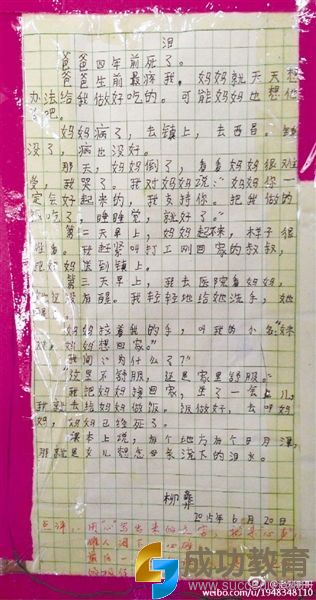 泪
爸爸四年前死了。
爸爸生前最疼我，妈妈就天天想
办法给我做好吃的。可能妈妈也想他
了吧。
妈妈病了，去镇上，去西昌。钱
没了，病也没好。
那天，妈妈倒了，看看妈妈很难
受，我哭了。我对妈妈说：“妈妈你一
定会好起来的，我支持你。把我做的
饭吃了，睡睡觉，就好了。”
第二天早上，妈妈起不来，样子很
难看。我赶紧叫打工刚回家的叔叔，
把妈妈送到镇上。
第三天早上，我去医院看妈妈，
她还没有醒。我轻轻地给她洗手，她
醒了。
妈妈拉着我的手，叫我的小名“妹
妹，妈妈想回家。”
我问：“为什么了？”
“这里不舒服，还是家里舒服。”
我把妈妈接回家，坐了一会儿，
我就去给妈妈做饭。饭做好，去叫妈
妈，妈妈已经死了。
课本上说，有个地方有个日月潭，
那就是女儿想念母亲流下的泪水。
柳彝
2015年6月20日
点评：用心写出来的文字，
成功教育
@老郑哥哥
weibo.com/u/1948348110